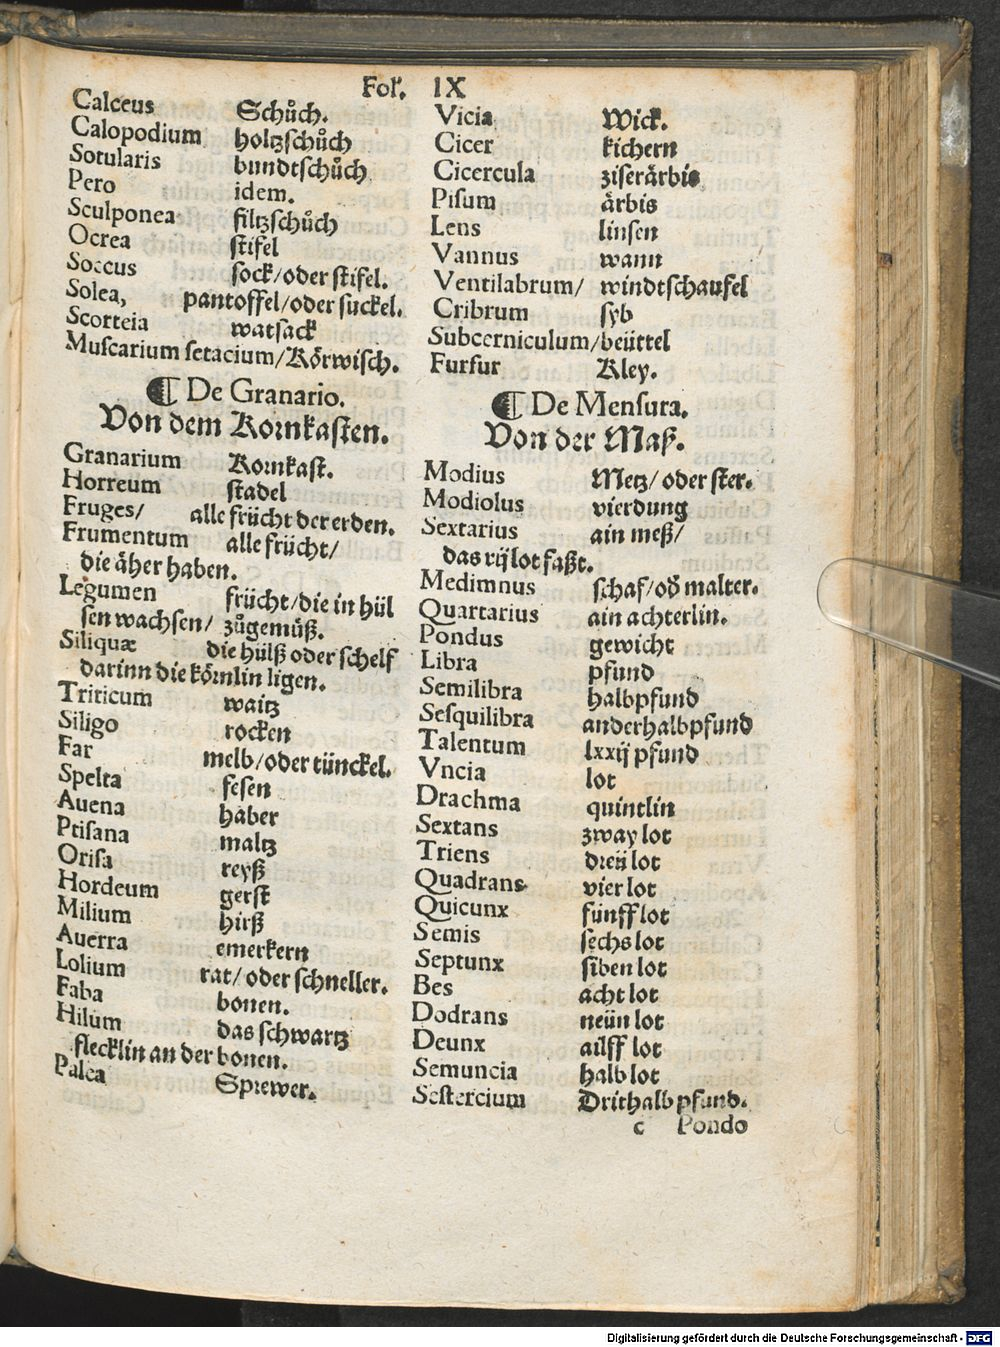 Fol. IX
Calceus Schůch.
Calopodium holtzschůch
Sotularis bundtschůch
Pero idem.
Sculponea filtzschůch
Ocrea stifel
Soccus sock/oder stifel.
Solea, pantoffel/oder suckel.
Scorteia watsack
Muscarium setacium/Körwisch.
¶ De Granario.
Von dem Kornkasten.
Granarium Kornkast.
Horreum stadel
Fruges/ alle frücht der erden.
Frumentum alle frücht/
die äher haben.
Legumen frücht/die in hül
sen wachsen/ zůgemüß.
Siliquæ die hülß oder schelf
darinn die körnlin ligen.
Triticum waitz
Siligo rocken
Far melb/oder tünckel.
Spelta fesen
Auena haber
Ptisana maltz
Orisa reyß
Hordeum gerst
Milium hirß
Auerra emerkern
Lolium rat/oder schneller.
Faba bonen.
Hilum das schwartz
flecklin an der bonen.
Palea Sprewer.
Vicia Wick.
Cicer kichern
Cicercula ziserärbis
Pisum ärbis
Lens linsen
Vannus wann
Ventilabrum/ windtschaufel
Cribrum syb
Subcerniculum/beüttel
Furfur Kley.
¶ De Mensura.
Von der Maß.
Modius Metz/oder ster.
Modiolus vierdung
Sextarius ain meß/
das xij lot faßt.
Medimnus schaf/od̄ malter.
Quartarius ain achterlin.
Pondus gewicht
Libra pfund
Semilibra halbpfund
Sesquilibra anderhalbpfund
Talentum lxxij pfund
Vncia lot
Drachma quintlin
Sextans zway lot
Triens dreü lot
Quadrans vier lot
Quicunx fünff lot
Semis sechs lot
Septunx siben lot
Bes acht lot
Dodrans neün lot
Deunx ailff lot
Semuncia halb lot
Sestercium Drithalb pfund.
c Pondo
Digitalisierung gefördert durch die Deutsche Forschungsgemeinschaft - DFG